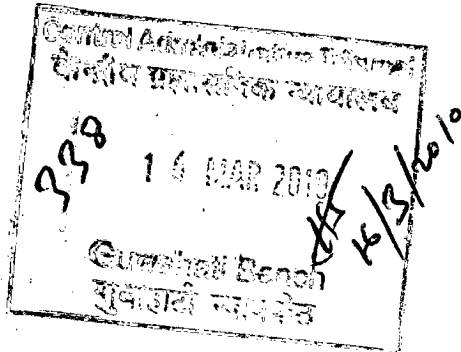 Central Administrative Tribunal
केन्द्रीय प्रशासनिक न्यायालय
338
16 MAR 2010
16/3/2010
Guwahati Bench
गुवाहाटी न्यायपीठ